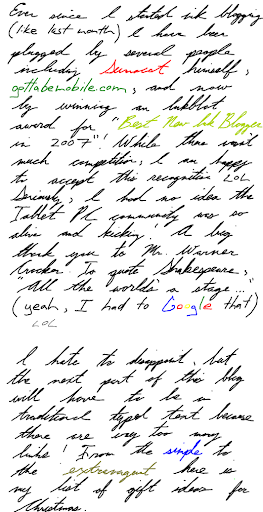 Ever since I started ink blogging
(like last month) I have been
plugged by several people
including Sumocat himself,
gottabemobile.com, and now
by winning an InkBlot
award for "Best New Ink Blogger
in 2007"! While there wasn't
much competition, I am happy
to accept this recognition LOL
Seriously, I had no idea the
Tablet PC community was so
alive and kicking! A big
thank you to Mr. Warner
Crocker. To quote Shakespeare,
"All the world's a stage..."
(yeah, I had to Google that)
LOL
I hate to disappoint, but
the next part of this blog
will have to be in
traditional typed text because
there are way too many
links! From the simple to
the extravagant here is
my list of gift ideas for
Christmas.